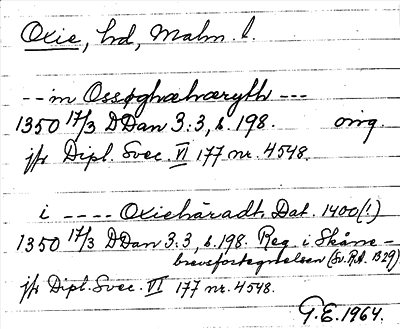 Oxie, hd, Malm. l.
-- in Ossøghæhæryth ---
1350 17/3 DDan 3:3, s. 198. orig.
jfr Dipl. Svec. VI 177 nr. 4548.
i ---- Oxiehäradt, Dat. 1400(!)
1350 17/3 DDan 3:3, s. 198. Reg. i Skåne-
brevsförtegnelsen (Sv. R.A. B29)
jfr Dipl. Svec. VI 177 nr. 4548.
G.E. 1964.